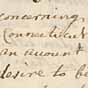 concerning
Connecticut
an account
desire to be